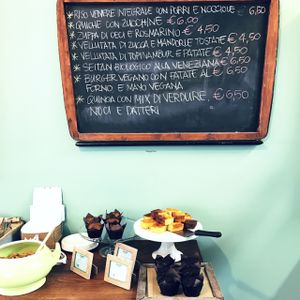 * RISO VENERE INTEGRALE CON PORRI E NOCCIOLE € 6,50
* QUICHE CON ZUCCHINE € 6,00
* ZUPPA DI CECI E ROSMARINO € 4,50
* VELLUTATA DI ZUCCA E MANDORLE TOSTATE € 4,50
* VELLUTATA DI TOPINAMBUR E PATATE € 4,50
* SEITAN BIOLOGICO ALLA VENEZIANA € 6,50
* BURGER VEGANO CON PATATE AL € 6,50
FORNO E MAYO VEGANA
* QUINOA CON MIX DI VERDURE, € 6,50
NOCI E DATTERI